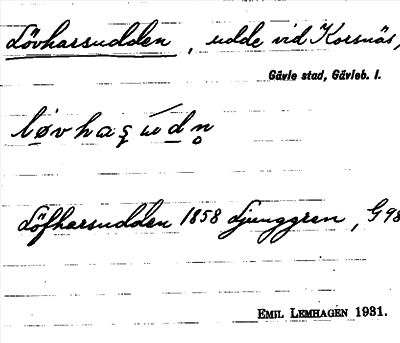 Lövharsudden, udde vid Korsnäs,
Gävle stad, Gävleb. l.
Löfharsudden 1858 Ljunggren, G 98
EMIL LEMHAGEN 1931.